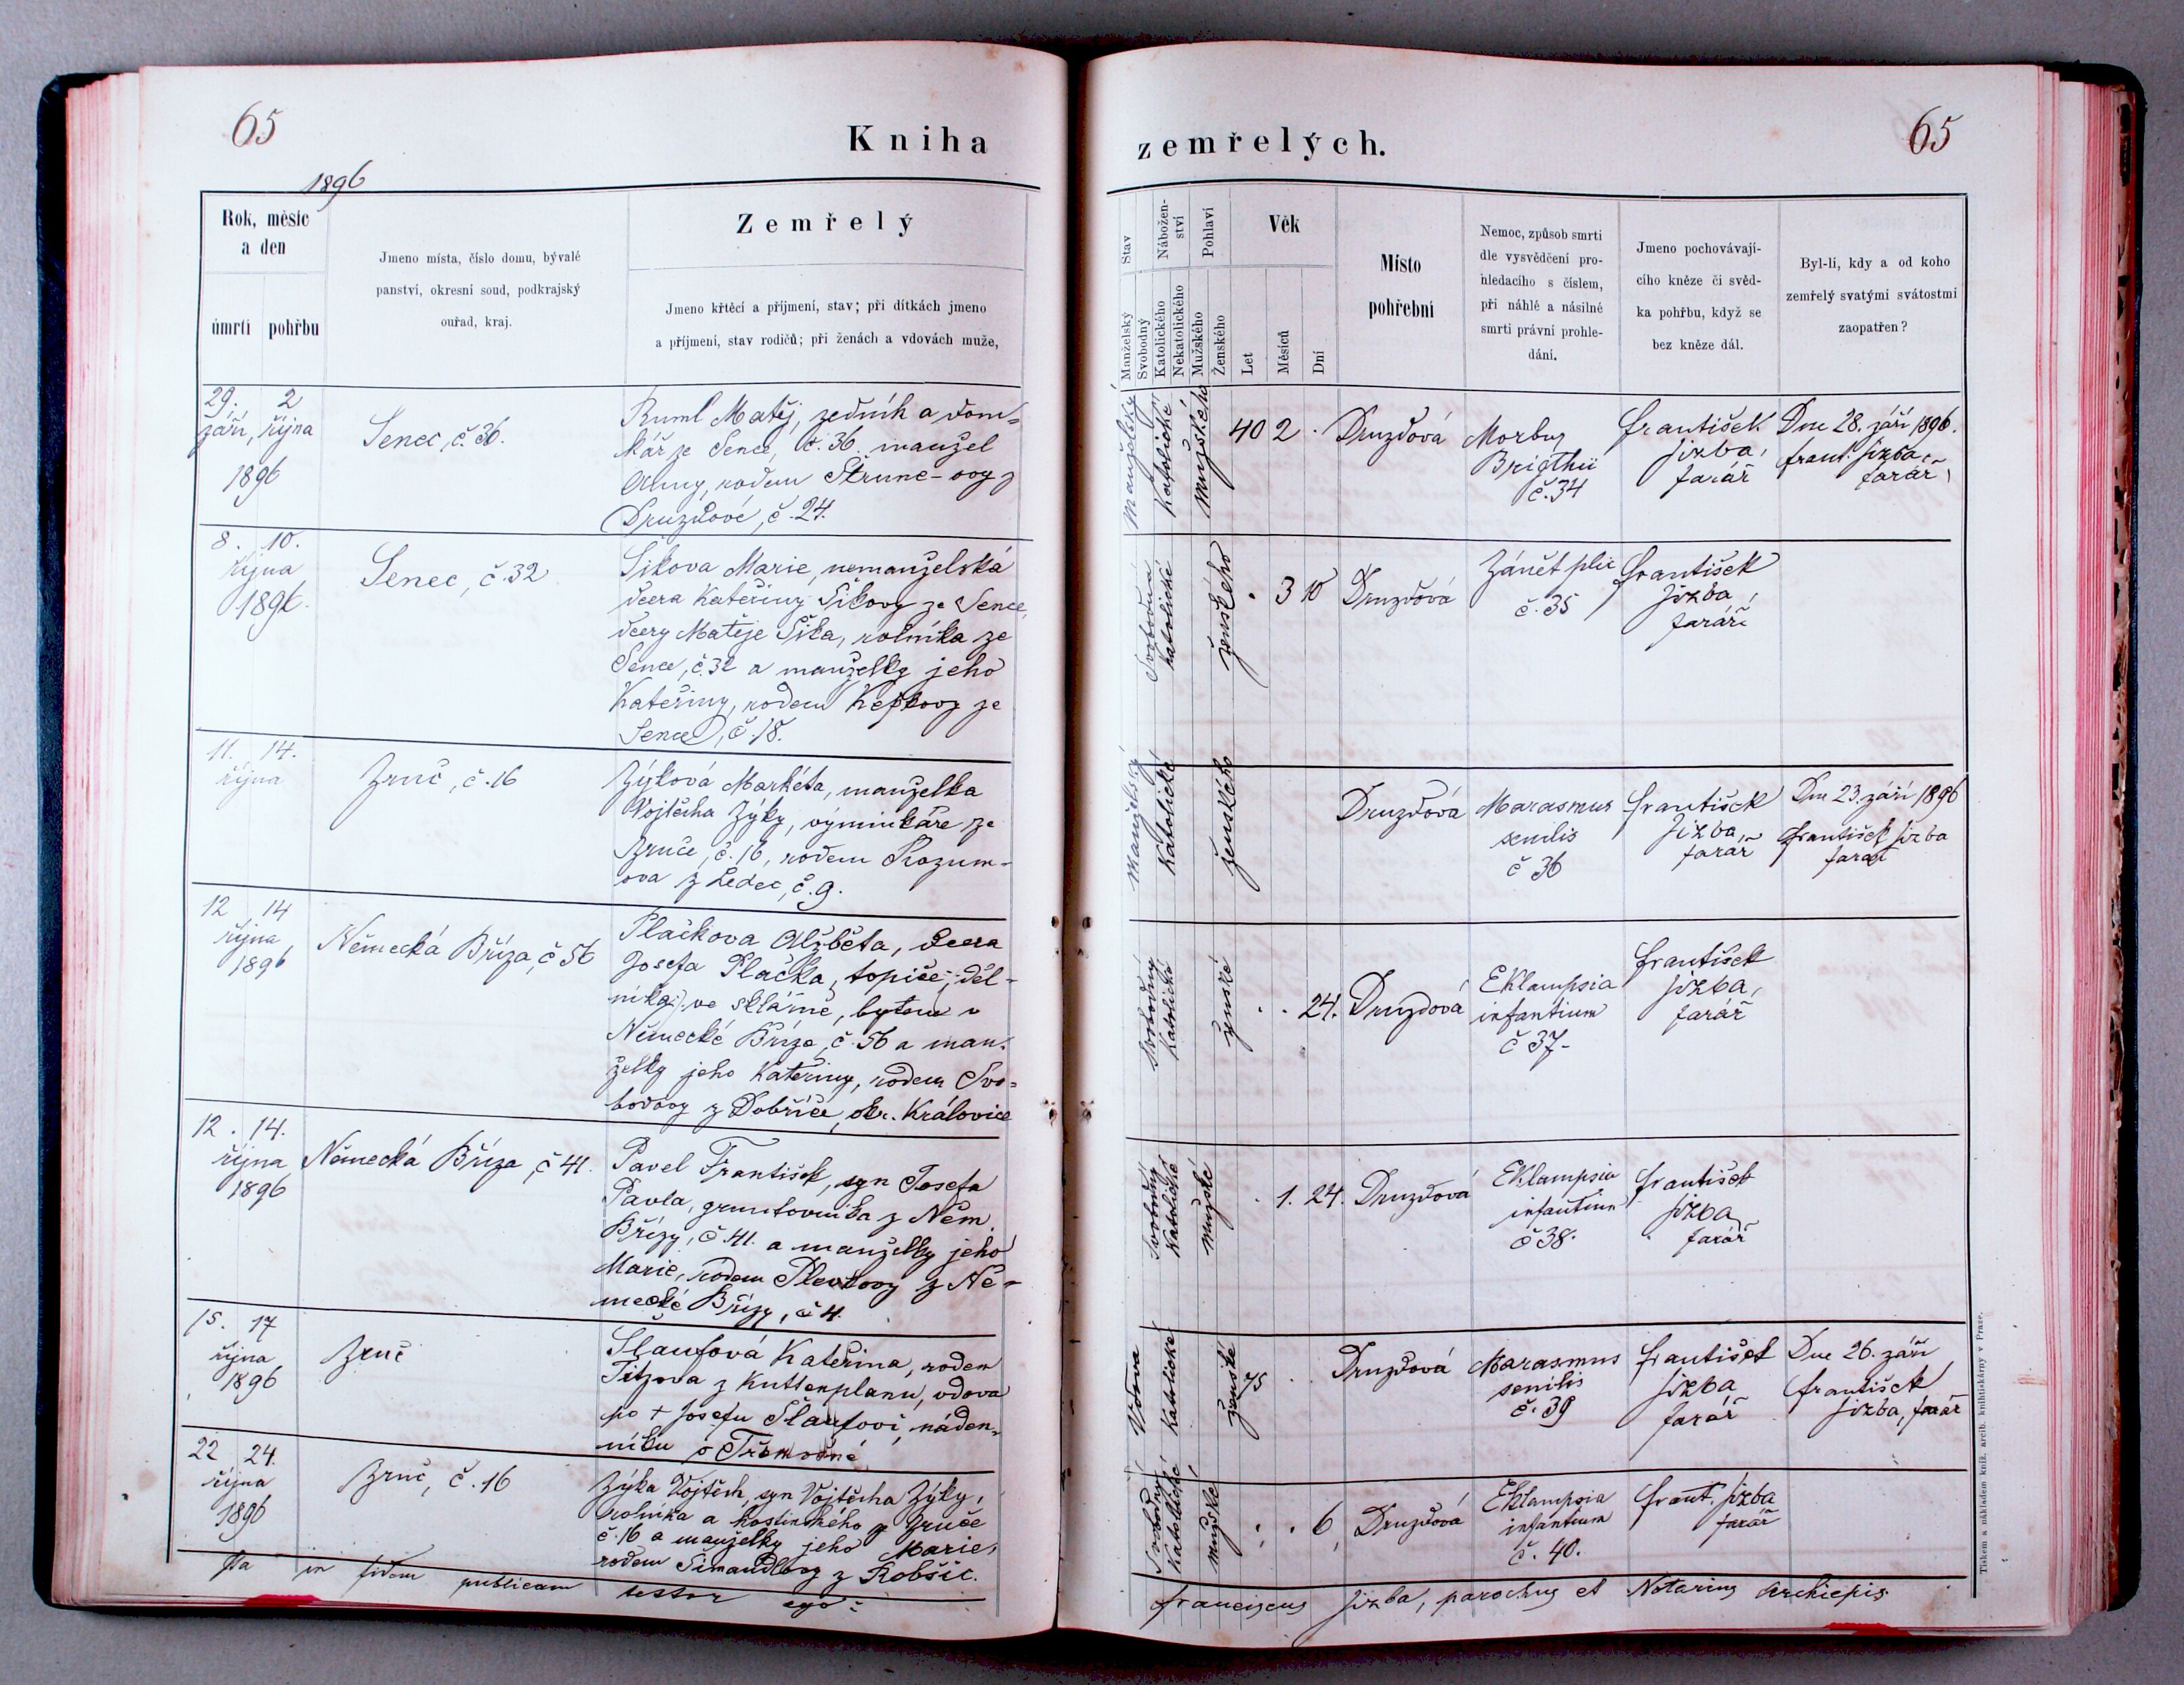 65
Kniha
1896
Rok, měsíc
a den
úmrtí
pohřbu
Jmeno místa, číslo domu, bývalé
panství, okresní soud, podkrajský
ouřad, kraj.
Zemřelý
Jmeno křtěcí a příjmení, stav; při dítkách jmeno
a příjmení, stav rodičů; při ženách a vdovách muže,
29. 2
září, října
1896
Senec, č. 36.
Ruml Matěj, zedník a dom=
kář ze Sence, č. 36. manžel
Anny, rodem Štrunc-ovy z
Druzdové, č. 24.
8. 10.
října
1896.
Senec, č. 32
Šikova Marie, nemanželská
dcera Kateřiny Šikovy ze Sence,
dcery Matěje Šika, rolníka ze
Sence, č. 32 a manželky jeho
Kateřiny, rodem ze
Sence, č. 18.
11. 14.
října
Zruč, č. 16
Zýková Markéta, manželka
Vojtěcha Zýky, výminkáře ze
Zruče, č. 16, rodem Rozum-
ova z Ledec, č. 9.
12 14
října,
1896
Německá Bříza, č 56
Plačkova Alžběta, dcera
Josefa Plačka, topiče, děl-
níka ve sklárně, bytem v
Německé Bříze, č. 56 a man-
želky jeho Kateřiny, rodem Svo=
bodovy z Dobříče, okr. Kralovice
12. 14.
října
1896
Německá Bříza, č 41.
Pavel František, syn Josefa
Pavla, gruntovníka z Něm.
Břízy, č. 41. a manželky jeho
Marie, rodem z Ně-
mecké Břízy, č 4.
15. 17
října
1896
Zruč
Šlaufová Kateřina, rodem
Titzova z Kuttenplanu, vdova
po + Josefu Šlaufovi, náden-
níku v Třemošné
22 24.
října
1896
Zruč, č. 16
Zýka Vojtěch, syn Vojtěcha Zýky,
rolníka a hostinského ze Zruče
č. 16 a manželky jeho Marie,
rodem Šimandlovy z Robšic.
Ita in fidem publicam testor ego:
zemřelých.
65
Stav
Manželský
Svobodný
Nábožen-
ství
Katolického
Nekatolického
Pohlaví
Mužského
Ženského
Věk
Let
Měsíců
Dní
Místo
pohřební
Nemoc, způsob smrti
dle vysvědčení pro-
hledacího s číslem,
při náhlé a násilné
smrti právní prohle-
dání.
Jmeno pochovávají-
cího kněze či svěd-
ka pohřbu, když se
bez kněze dál.
Byl-li, kdy a od koho
zemřelý svatými svátostmi
zaopatřen?
manželský
katolické
mužského
40 2 .
Druzdová
Morbus
Brigthii
č. 34
František
Jizba,
farář
Dne 28. září 1896.
Frant. Jizba,
farář
Svobodná
katolické
ženského
. 3 10
Druzdová
Zánět plic
č. 35
František
Jizba,
farář
manželský
katolické
ženského
Druzdová
Marasmus
senilis
č 36
František
Jizba,
farář
Dne 23. září 1896
František Jizba
farář
Svobodný
katolické
ženské
. . 24.
Druzdová
Eklampsia
infantium
č 37-
František
Jizba,
farář
Svobodný
katolické
mužské
. 1. 24.
Druzdová
Eklampsia
infantium
č 38.
František
Jizba,
farář
Vdova
katolické
ženské
75 . .
Druzdová
Marasmus
senilis
č. 39
František
Jizba
farář
Dne 26. září
František
Jizba, farář
Svobodný
katolické
mužské
. . 6
Druzdová
Eklampsia
infantium
č. 40.
Frant. Jizba
farář
Franciscus Jizba, parochus et Notarius Archiepis
Tiskem a nákladem kníž. arcib. knihtiskárny v Praze.